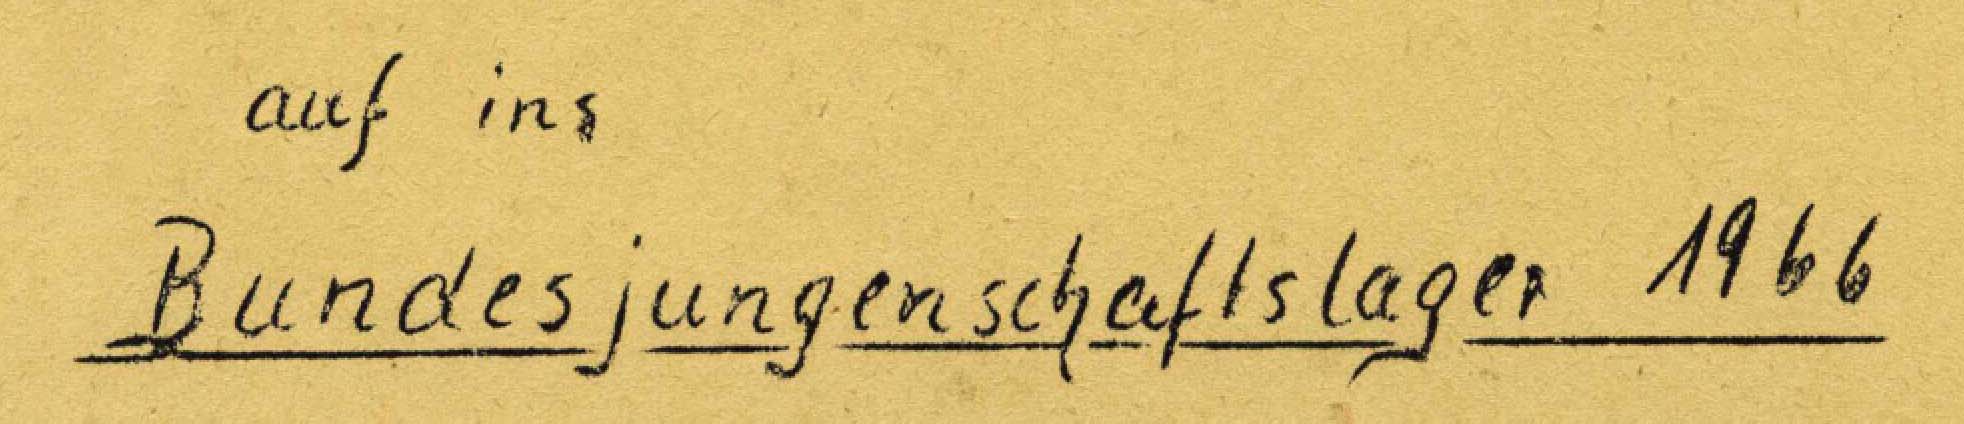 auf ins
Bundesjungenschaftslager 1966